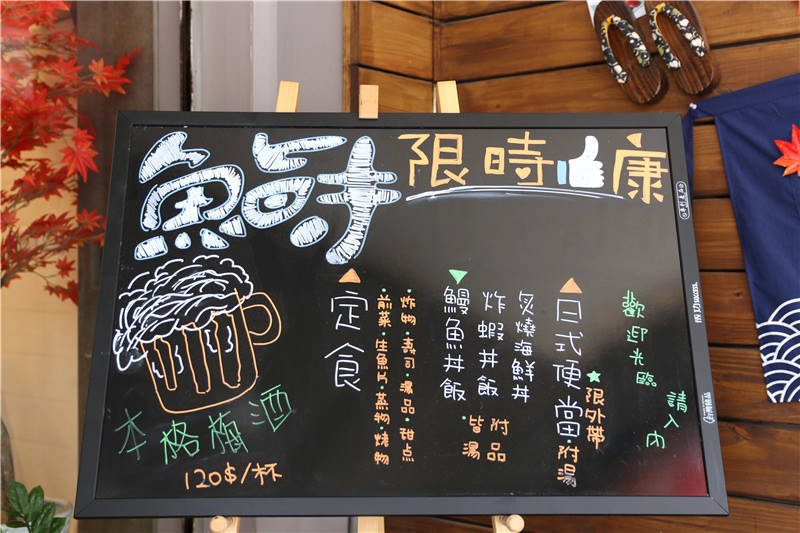 鮮 限時 康
歡迎光臨
請入內
日式便當·附湯
★限外帶
炙燒海鮮丼
炸蝦丼飯
鰻魚丼飯
·附品
皆湯
定食
炸物·壽司·湯品·甜点
前菜·生魚片·蒸物·燒物
本格梅酒
120$/杯
成功